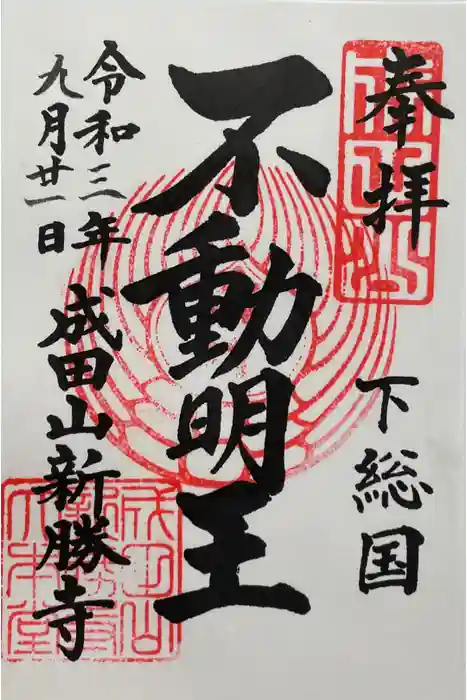 奉拝
下総国
不動明王
令和三年
九月廿一日
成田山新勝寺
成田山